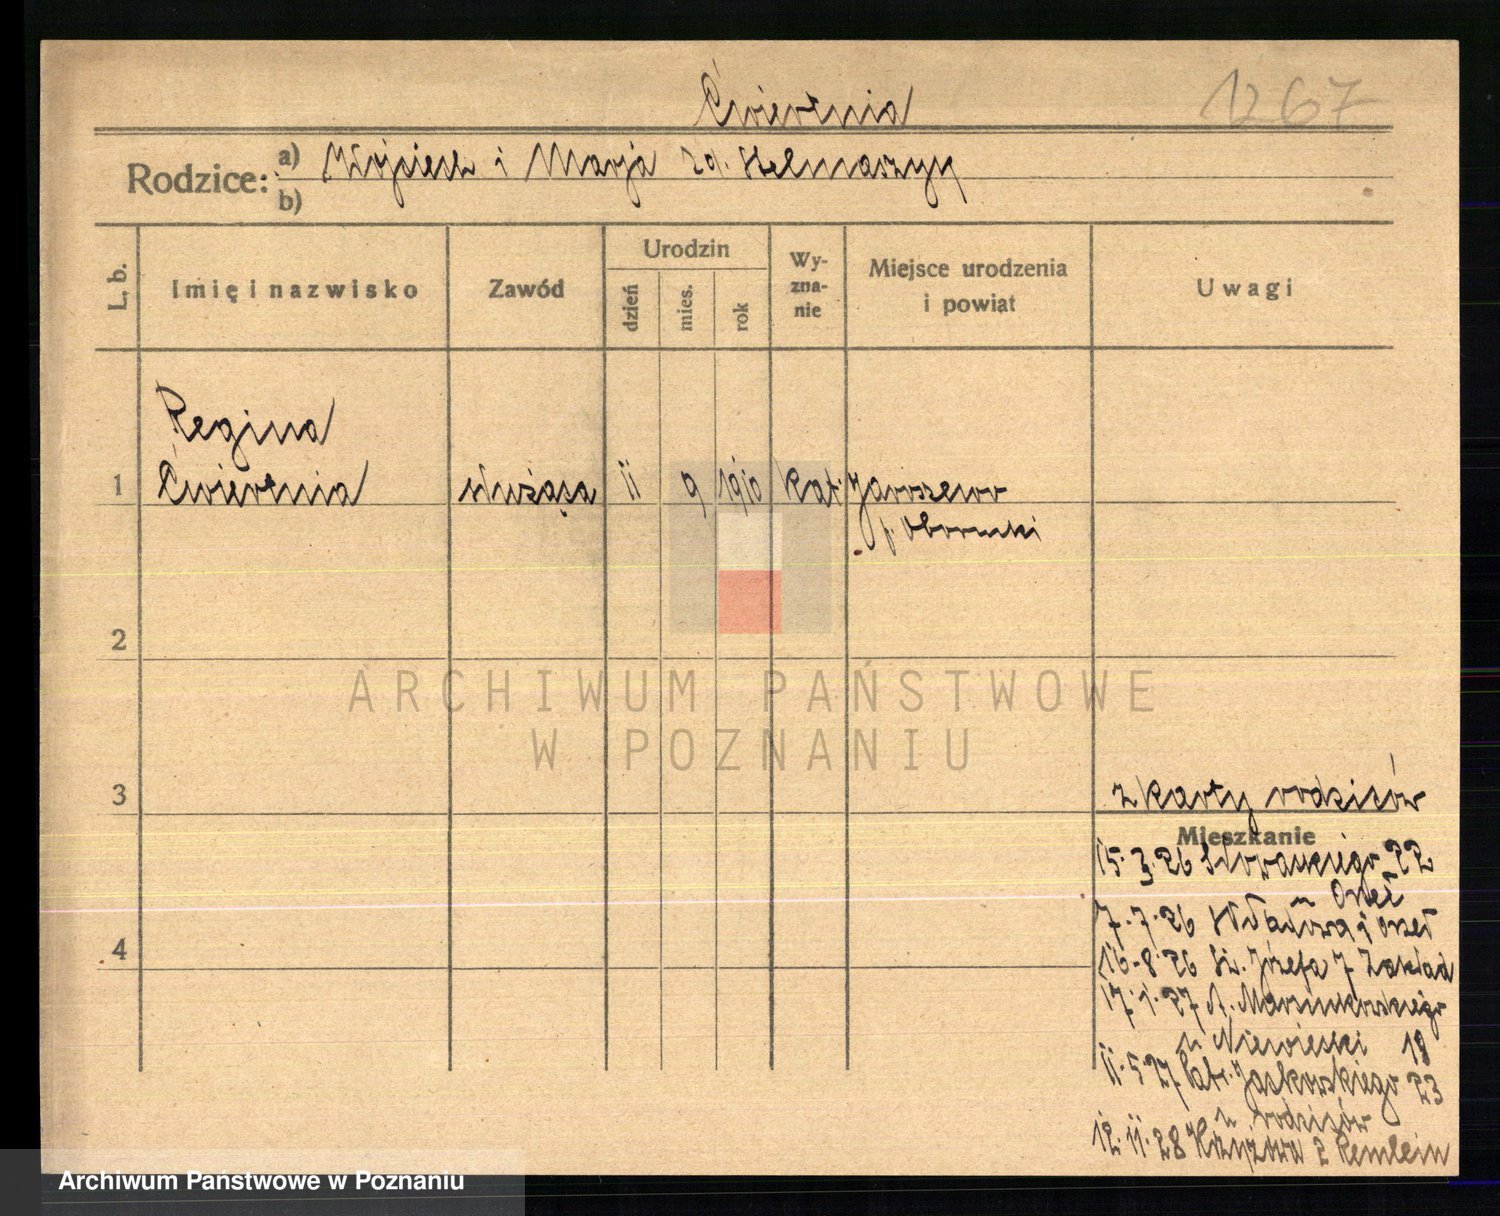 Ćwiertnia
1267
Rodzice: a) Wojciech i Marja zd. Helmaszyk
b)
L. b.
Imię i nazwisko
Zawód
Urodzin
dzień
mies.
rok
Wy-
zna-
nie
Miejsce urodzenia
i powiat
Uwagi
Regina
1 Ćwiertnia służąca 11 9 1910 kat. Jaroszewo
p. Obornicki
2
ARCHIWUM PAŃSTWOWE
W POZNANIU
3
z karty rodziców
Mieszkanie
15.3.26 Słowackiego 22
u Orzeł
7.7.26 orzeł
4
16.8.26 Św. Józefa 7 Zakład
17.1.27 A. Marcinkowskiego
u Niewiecki 18
11.5.27 Patr. Jackowskiego 23
u rodziców
12.11.28 Krzyżowa 2 Remlein
Archiwum Państwowe w Poznaniu